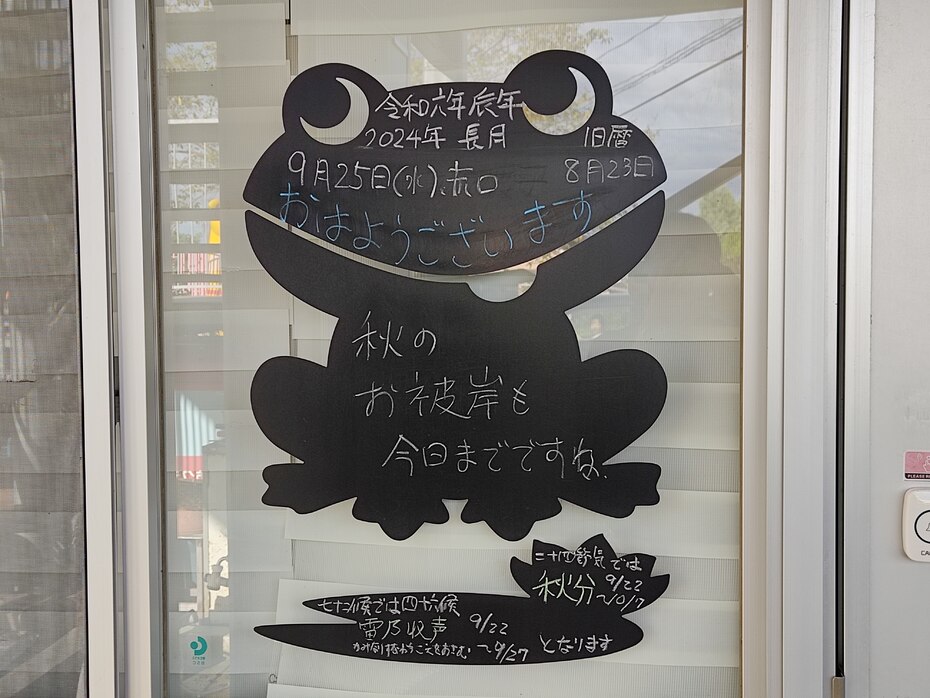 令和六年辰年
2024年 長月 旧暦
9月25日(水)、赤口 8月23日
おはようございます
秋の
お被岸も
今日までですね.
二十四節気では
秋分 9/22
〜10/7
七十二候では四十六候
雷乃収声 9/22
かみなりすなわちこえをおさむ 〜9/27 となります